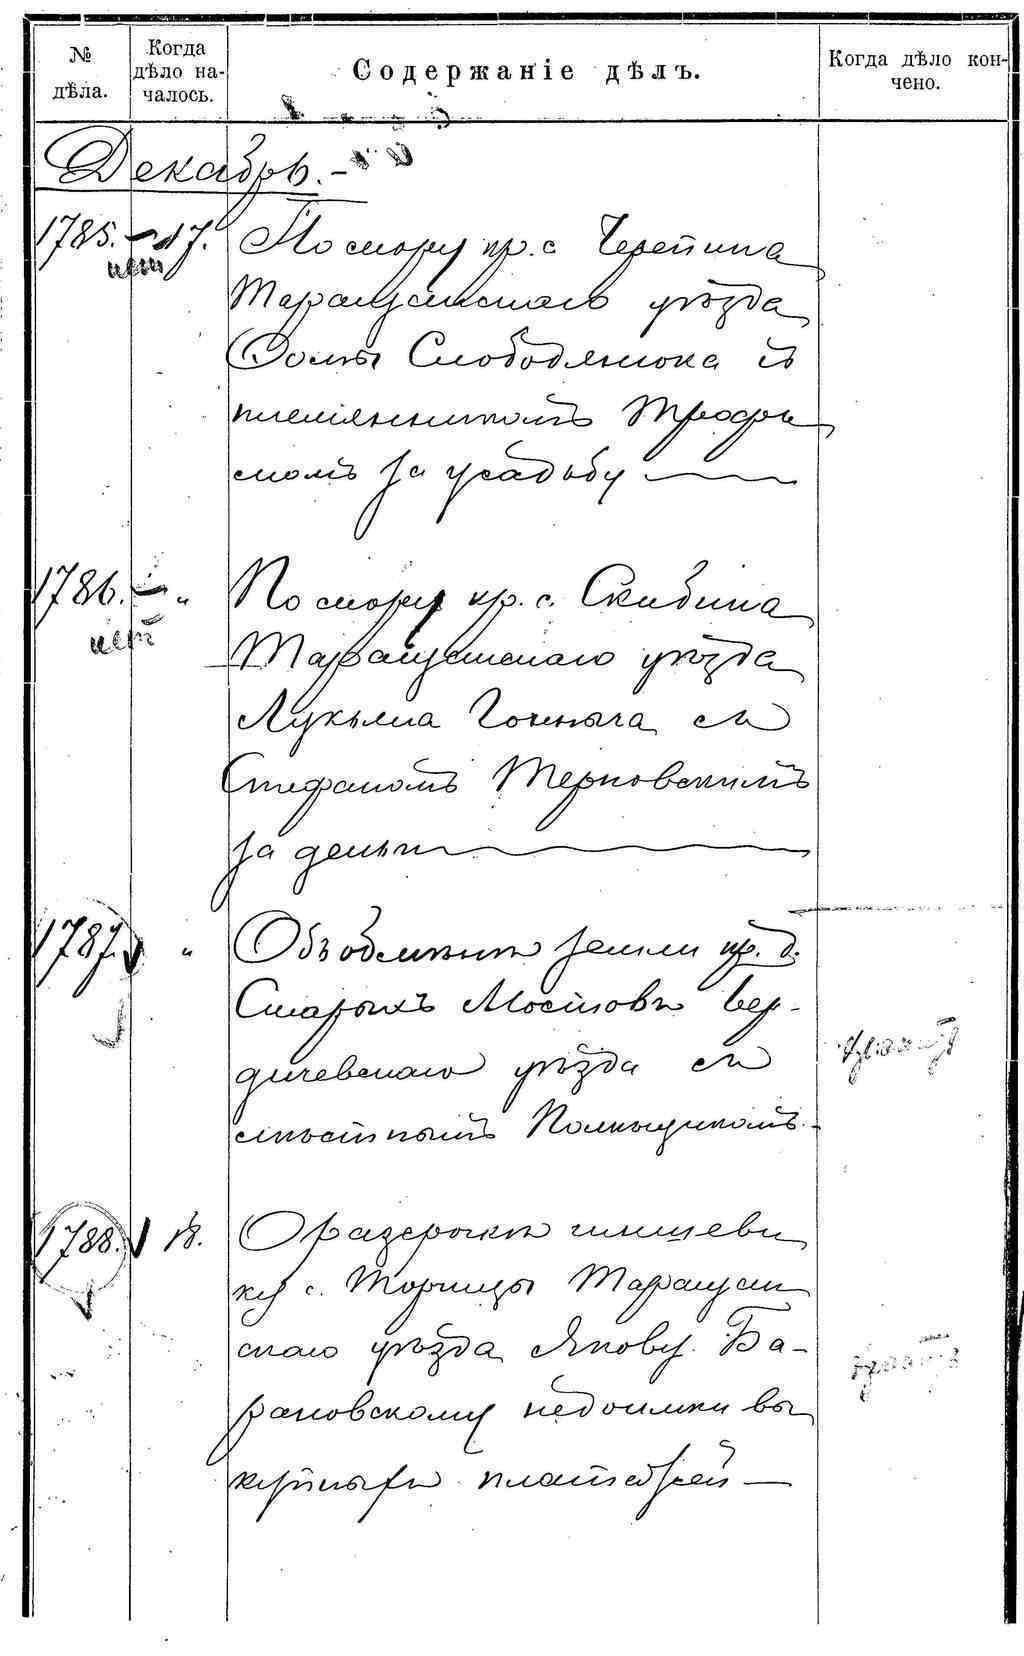 № дѣла.
Когда дѣло на-
чалось.
Содержаніе дѣлъ.
Когда дѣло кон-
чено.
Декабрь.-
1785. - 17. По спору кр. с. Черепина
нет
Таращанскаго уѣзда
Фомы Слободянюка съ
племянникомъ Трофи
момъ за усадьбу
1786. - " По спору кр. с. Скибина
нет
Таращанскаго уѣзда
Лукьяна Гонныча съ
Стефаномъ Терновскимъ
за деньги
1787. " Объ обмѣнѣ земли кр. д.
Старыхъ Мостовъ Бер-
дичевскаго уѣзда съ
мѣстнымъ Помѣщикомъ.
1788. 18. О разсрочкѣ чиншеви
ку с. Торчицы Таращан
скаго уѣзда Якову Ба-
рановскому недоимки вы
купныхъ платежей -